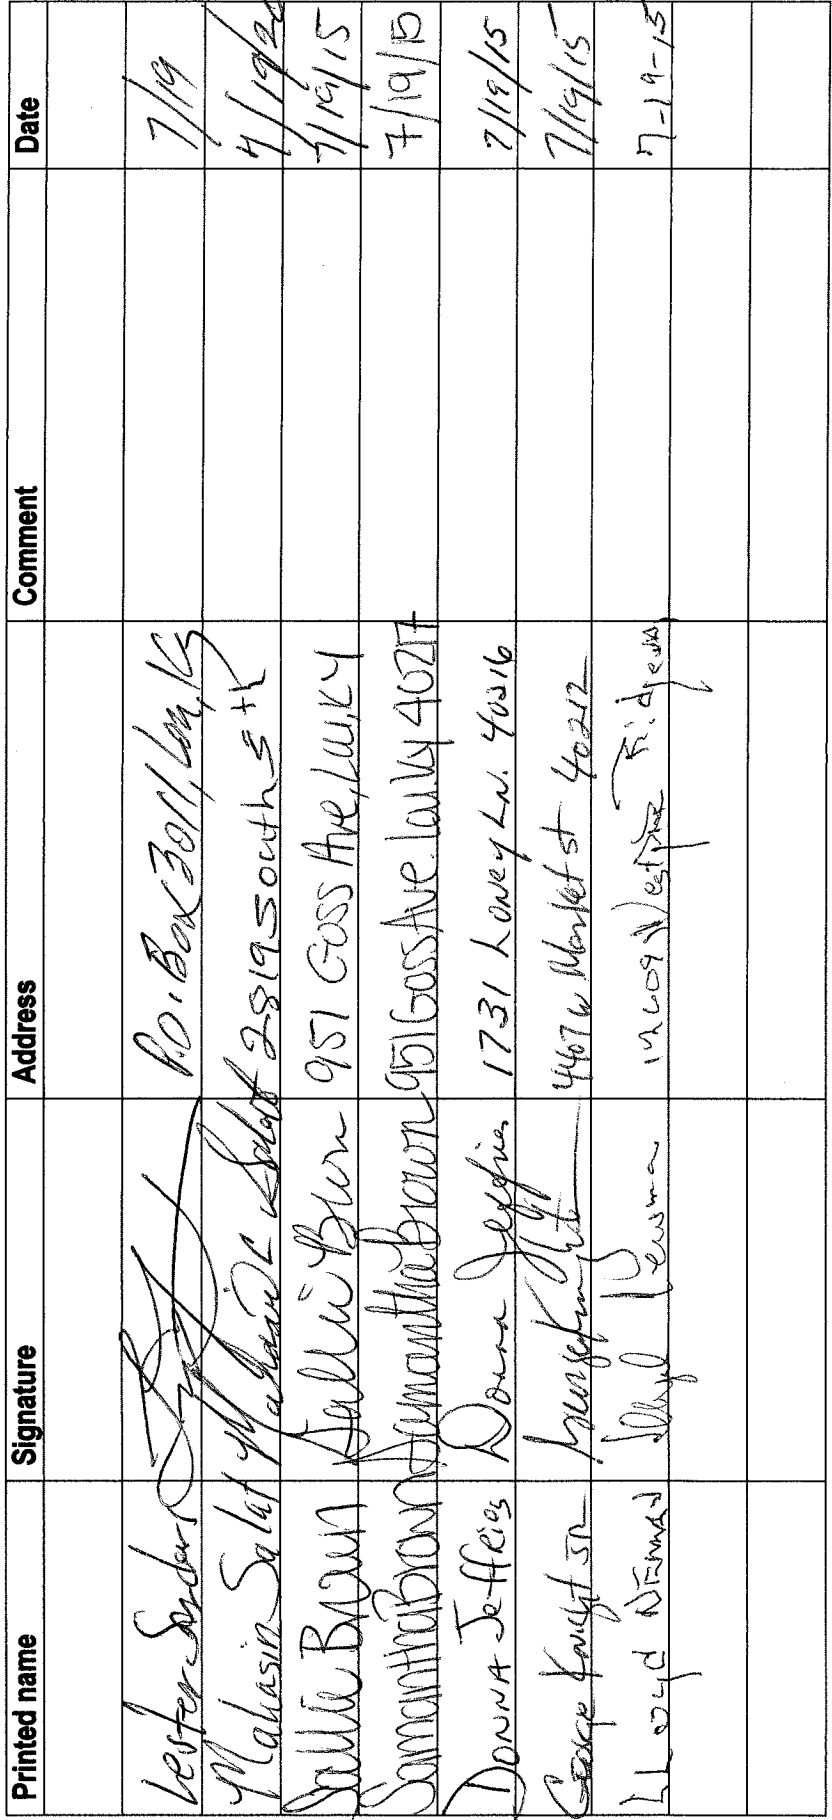 Printed name Signature Address Comment Date
Lester Sanders P.O. Box 3011, Lou, Ky 7/19
Mahasin Salat Mahasin Salat 2819 South 5th 7/19/20
Sallie Brown Sallie Brown 951 Goss Ave, Lou, KY 7/19/15
Samantha Brown Samantha Brown 951 Goss Ave. Lou Ky 40217 7/19/15
DONNA Jeffries Donna Jeffries 1731 Loney Ln. 40216 7/19/15
George Knight JR George Knight 4467 W Market st 40212 7/19/15
LLoyd 7-19-15